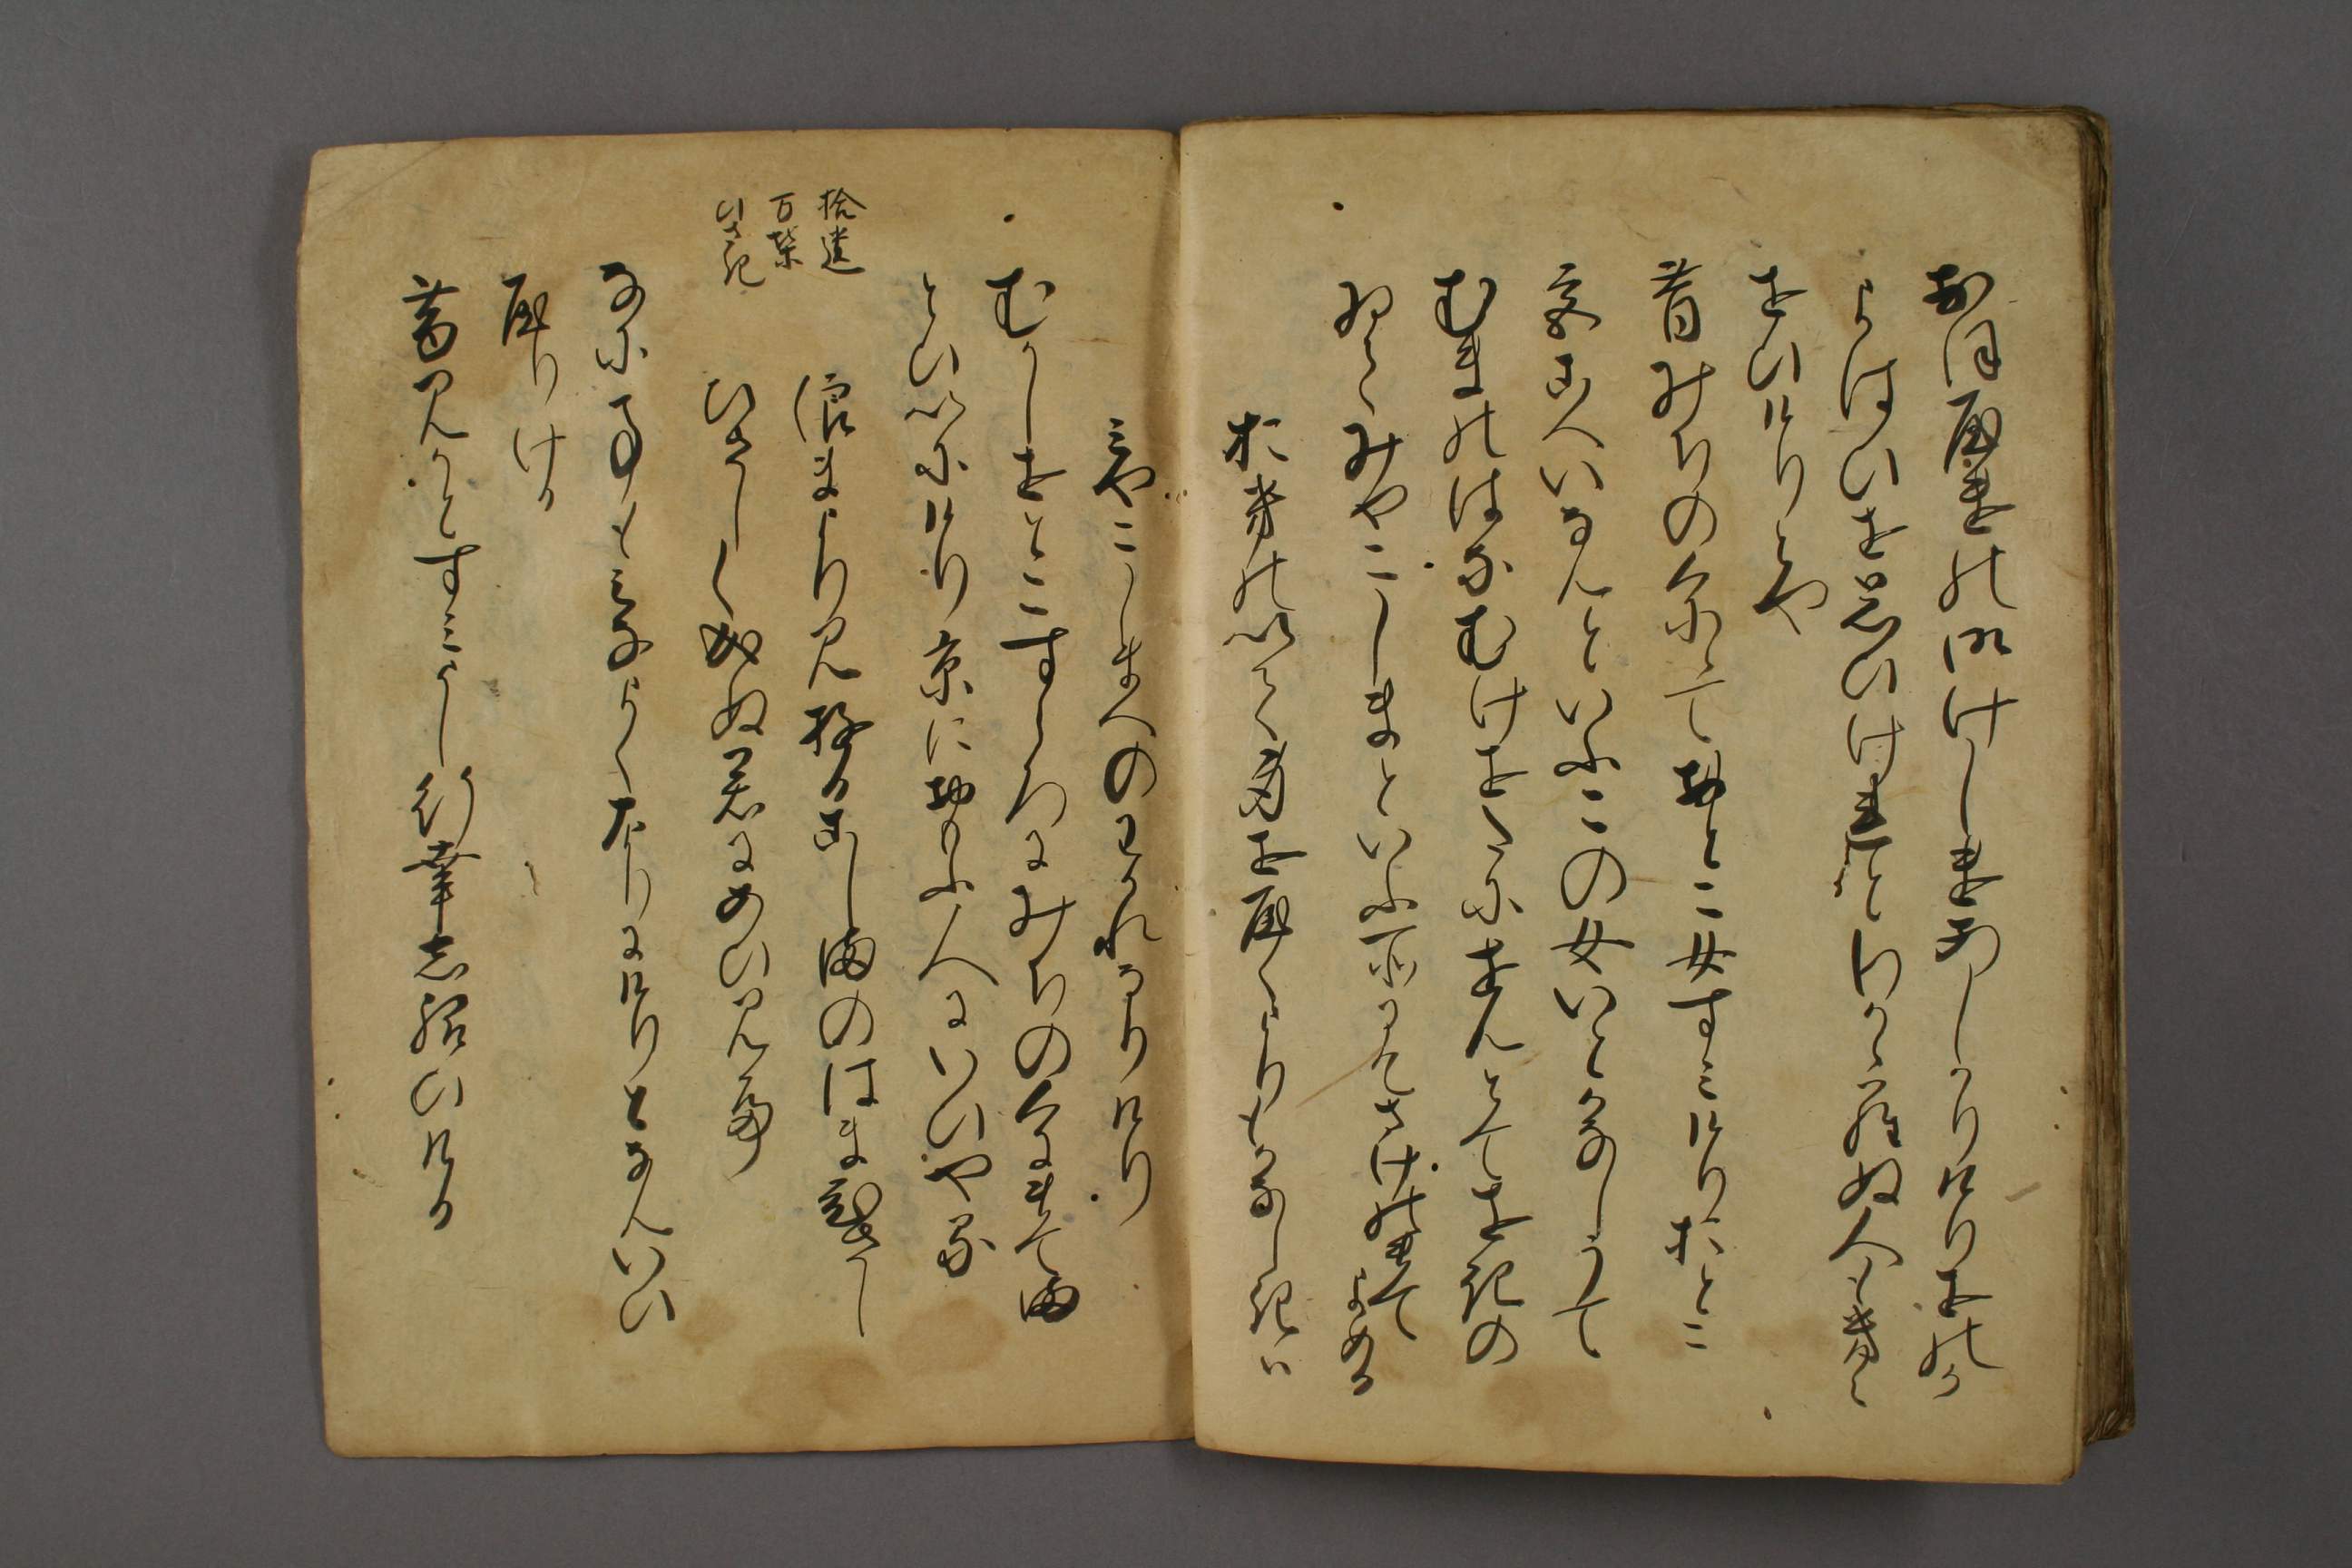 おほやけの御けしきあしかりけりをのか
よはひを思ひけれとわかゝらぬ人もきゝ
をひけりとや
昔みちのくにゝておとこ女すみけりおとこ
宮こへいなんといふこの女いとかなしうて
むまのはなむけをたにせんとてをきの
ゐてみやこしまといふ所にてさけのませてよめる
おきのゐて身をやくよりもかなしきは
みやこしまへのわかれなりけり
むかしをとこすゝろにみちのくにまてま
とひいにけり京におもふ人にいひやる
拾遺
万葉
ひさき
浪まより見ゆるこしまのはまひさし
ひさしく成ぬ君にあひ見て
なに事もみなよくなりにけりとなんいひ
やりける
昔みかとすみよし行幸し給ひける